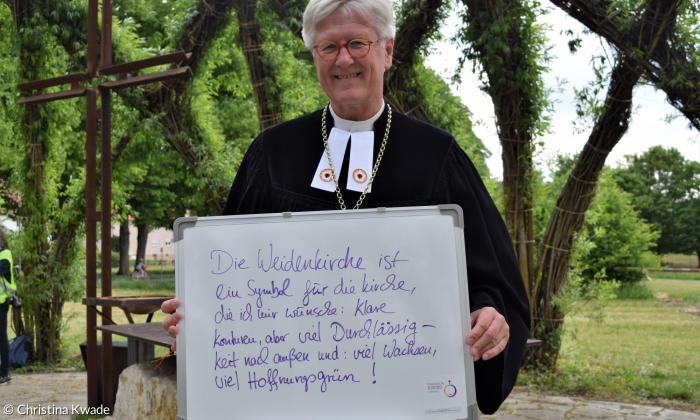 Die Weidenkirche ist
ein Symbol für die Kirche,
die ich mir wünsche: Klare
Konturen, aber viel Durchlässig-
keit nach außen und: viel Wachsen,
viel Hoffnungsgrün!
© Christina Kwade